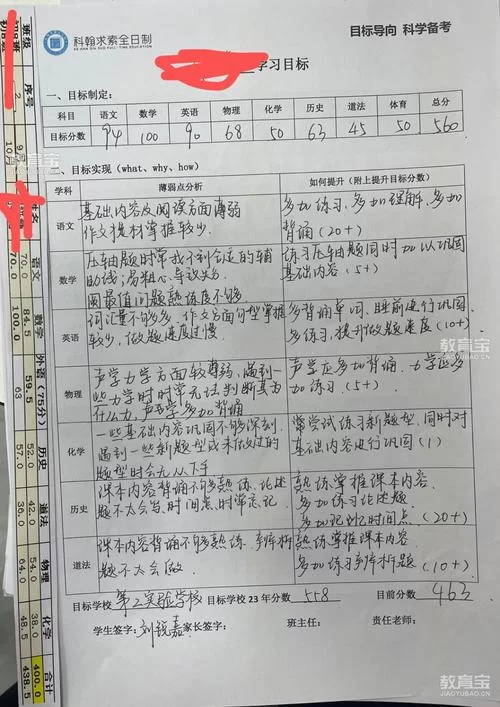 科翰求索全日制
目标导向 科学备考
学习目标
一、目标制定：
科目 语文 数学 英语 物理 化学 历史 道法 体育 总分
目标分数 94 100 90 68 50 63 45 50 560
二、目标实现（what、why、how）
学科 薄弱点分析 如何提升（附上提升目标分数）
语文
基础内容及阅读方面薄弱
作文技材掌握较少。
多加练习，多加理解，多加
背诵（20+）
数学
压轴题时常找不到合适的辅
助线；易粗心导致失分
圆最值问题熟练度不够
练习压轴题同时加以巩固
基础内容（5+）
英语
词汇量不够多，作文方面句型掌握
较少，做题速度过慢
多背诵单词，睡前进行巩固
多练习，提升做题速度（10+）
物理
声学力学方面较薄弱，遇到一
些力学时时常无法判断其为
什么力，声学多加背诵
声学应多加背诵，力学应多
加练习（5+）
化学
一些基础内容巩固不够深刻
遇到一些新题型或未做过的
题型时会无从下手
常尝试练习新题型，同时对
基础内容进行巩固（1）
历史
课本内容背诵不够熟练，论述
题不太会写，时间点时常忘记
熟练掌握课本内容
多加练习论述题
多加记忆时间点（20+）
道法
课本内容背诵不够熟练，辨析
题不太会做
熟练掌握课本内容
多加练习辨析题（10+）
目标学校 第二实验学校 目标学校 23 年分数 558 目前分数 463
学生签字：刘锐嘉 家长签字： 班主任： 责任老师：
班级 序号 姓名 语文 数学 外语（75分） 历史 道法 物理 化学 合计
2 70.0 84.5 59.5 52.0 42.0 54.0 38.0 400.0
9 70.0 104.0 63 57.0 36.0 64.0 48.5 438.5
教育宝
教育宝
教育宝
JIAOYUBAO.CN